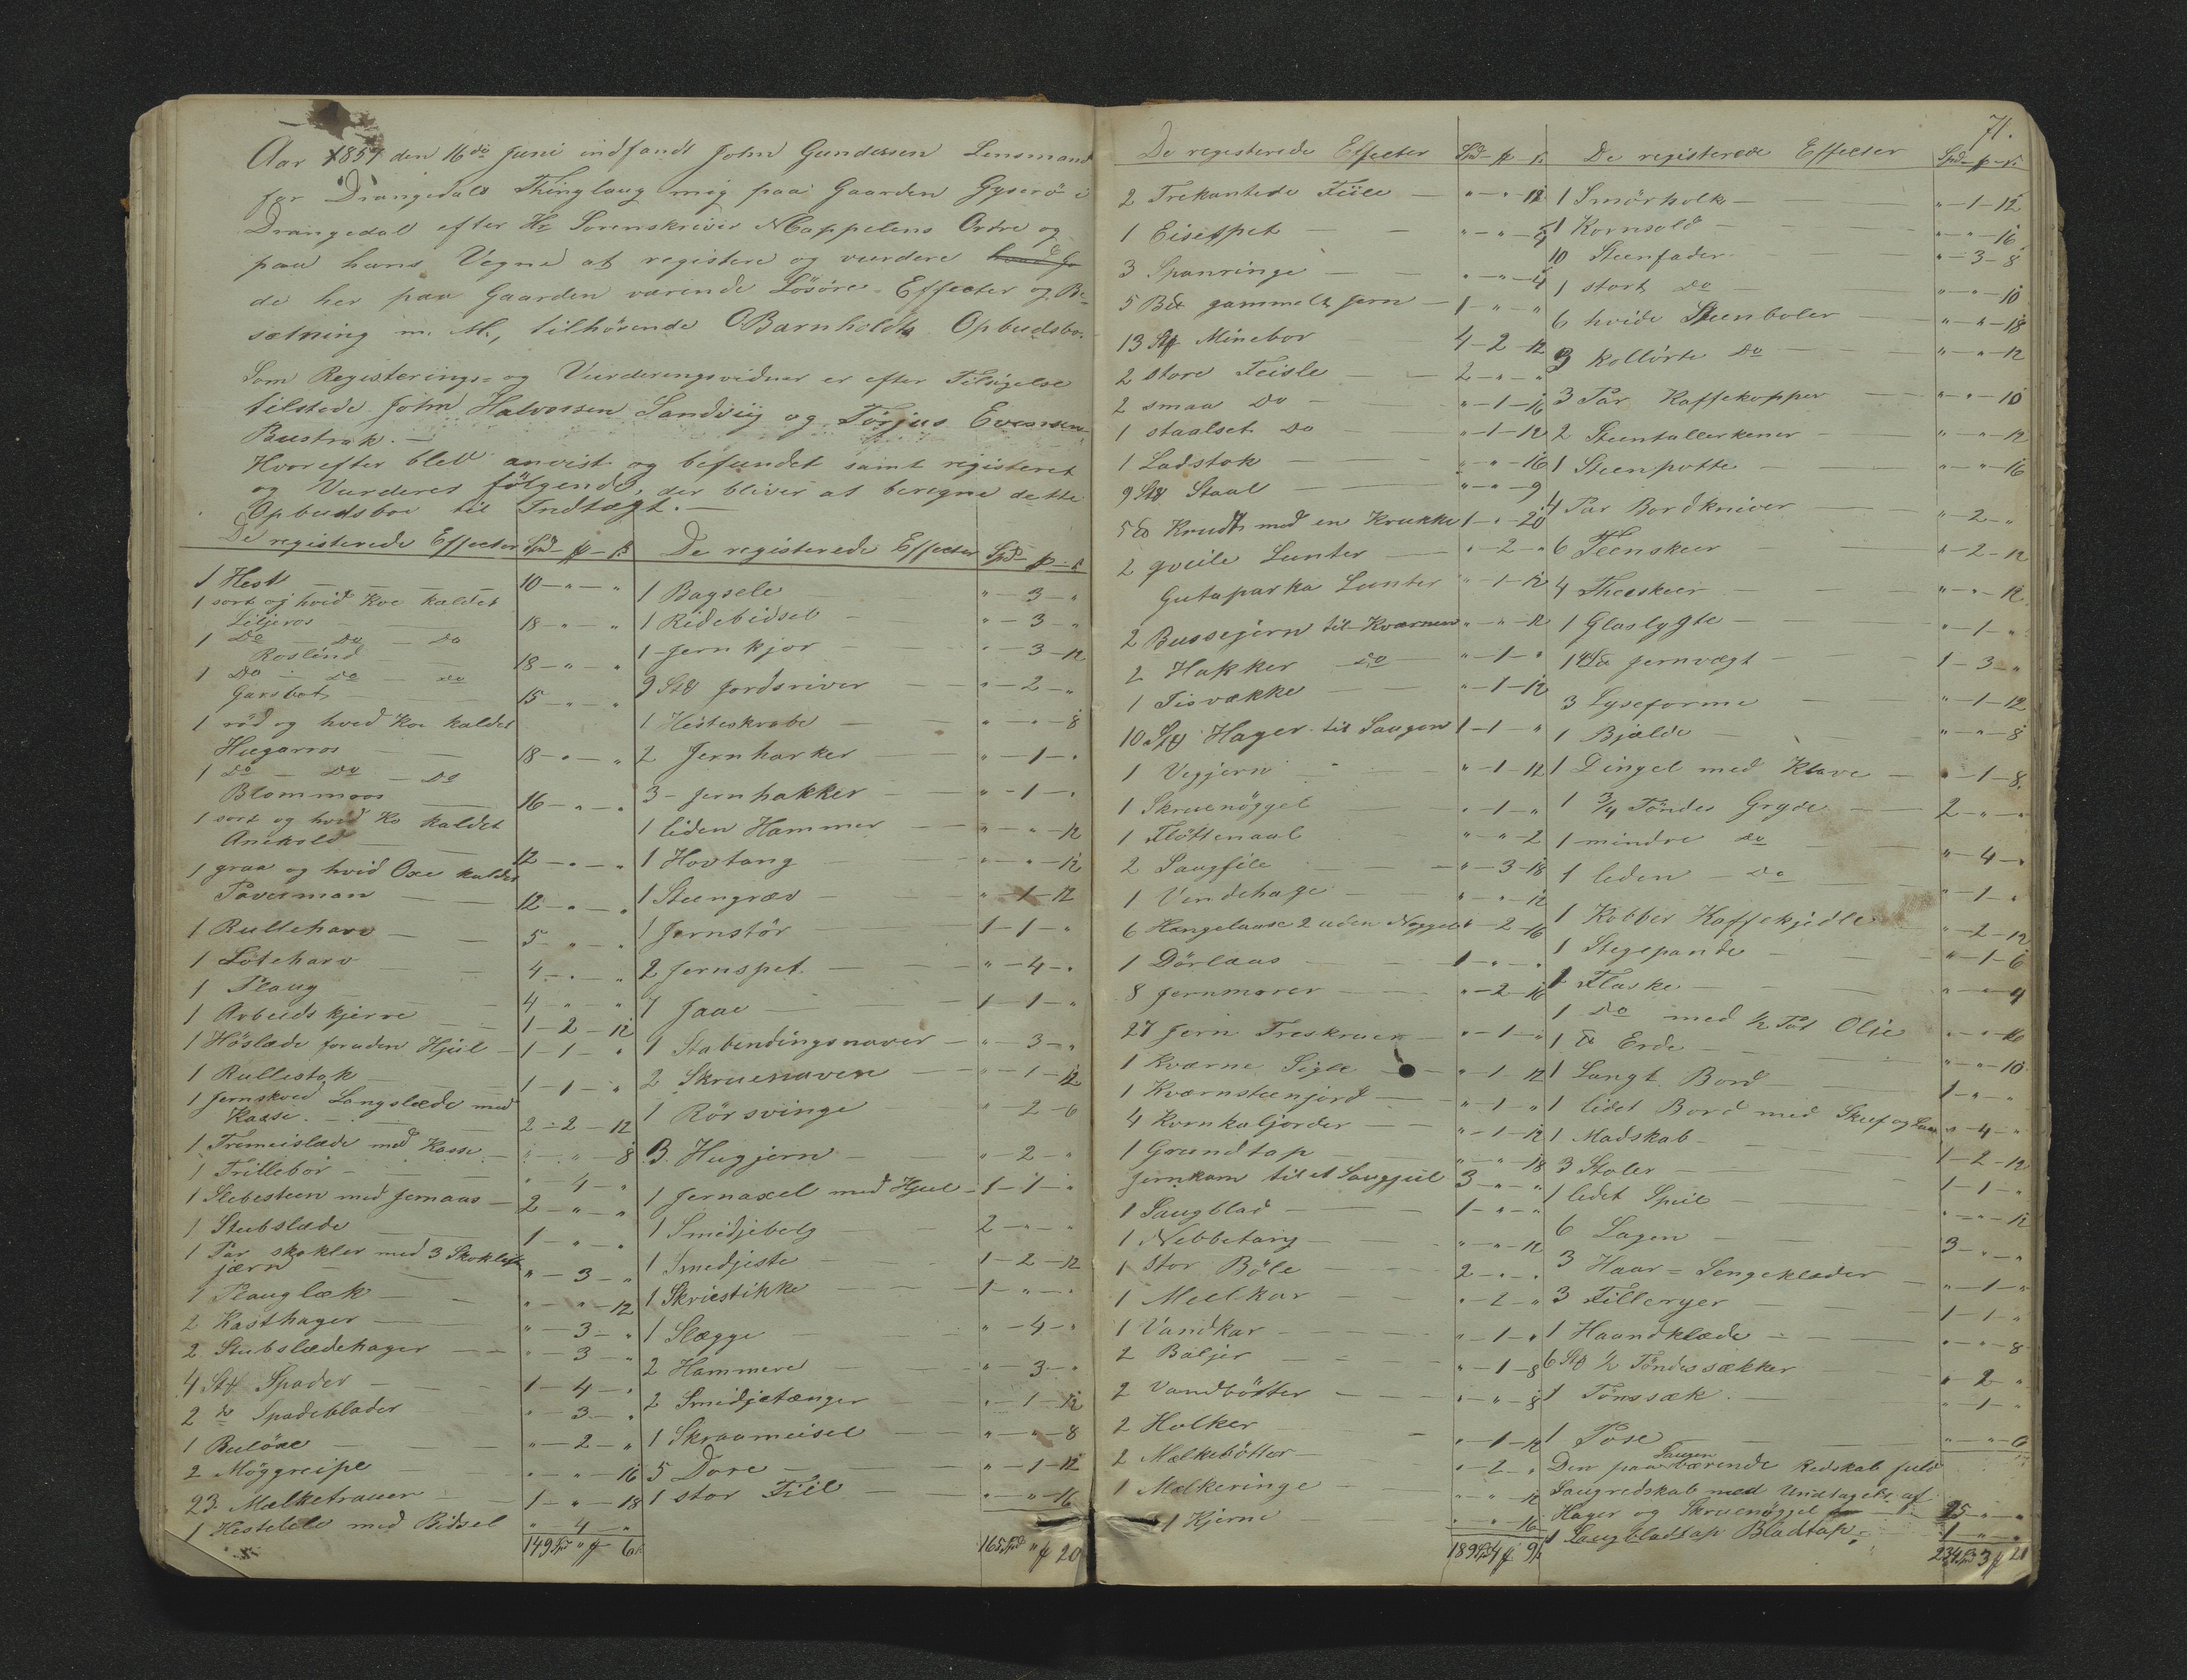 Aar 1857 den 16de Juni indfandt John Gundersen Lensmand
for Drangedals Thinglaug mig paa Gaarden Gyserö i
Drangedal efter Hr Sorenskriver NCappelens Ordre og
paa hans Vegne at registere og vurdere
de her paa Gaarden værende Lösöre-Effecter og Be-
sætning m. M., tilhörende OBarnholdts Opbudsbo.
Som Registerings- og Vurderingsvidner er efter Tilsigelse
tilstede John Halvorsen Sandviig og Torjus Evensen
Bustrak.
Hvorefter blev anvist og befundet samt registeret
og Vurderet fölgende, der bliver at beregne dette
Opbudsboe til Indtægt.
De registerede Effecter Spd - ƒ - ß
1 Hest 10 - " - "
1 sort og hvid Koe kaldet
Liljeros 18 - " - "
1 Do - Do - Do
Roslind 18 - " - "
1 Do - Do - Do
Garsbot 15 - " - "
1 röd og hvid Koe kaldet
Hugarros 18 - " - "
1 Do - Do - Do
Blommros 16 - " - "
1 sort og hvid Ko kaldet
12 - " - "
1 graa og hvid Oxe kaldet
Paverman 12 - " - "
1 Rulleharv 5 - " - "
1 Löteharv 4 - " - "
1 Plaug 4 - " - "
1 Arbeids kjerre 1 - 2 - 12
1 Höslæde foruden Hjul 1 - 1 - "
1 Rullestok 1 - 1 - "
1 Jernskoed Langslæde med
Kasse 2 - 2 - 12
1 Tremeislæde med Kasse " - " - 8
1 Trillebör " - 4 - "
1 Slebesteen med Jernaas 2 - " - "
1 Stubslæde 1 - " - "
1 Par skokler med 3
jærn " - 3 - "
1 Plauglæk " - " - 12
2 Kasthager " - 3 - "
2 Stubslædehager " - 3 - "
4 Stk Spader 1 - 4 - "
2 do Spadeblader " - 3 - "
1 Bulöxe " - 2 - "
2 Möggreipe " - " - 16
23 Mælketrauer 1 - " - 18
1 Hestelele med Bidsel " - 4 - "
149 Spd " ƒ 6 ß
De registerede Effecter Spd - ƒ - ß
1 Bagsele " - 3 - "
1 Ridebidsel " - 3 - "
1 Jern kjor " - 3 - 12
9 Stk Jordsriver " - 2 - "
1 Hesteskrabe " - " - 8
2 Jernharker " - 1 - "
3 - Jernhakker " - 1 - "
1 liden Hammer " - " - 12
1 Hovtang " - " - 12
1 Steengræv " - 1 - 12
1 Jernstör 1 - 1 - "
2 Jernspet " - 4 - "
7 Jaae 1 - 1 - "
1 Stabendingsnaver " - 3 - "
2 Skruenaven " - 1 - 12
1 Rörsvinge " - 2 - 6
3 Hugjern " - 2 - "
1 Jernaxel med Hjul 1 - 1 - "
1 Smidjebelg 2 - " - "
1 Smedjeste 1 - 2 - 12
1 Skruestikke 1 - " - "
1 Slægge " - 4 - "
2 Hammere " - 3 - "
2 Smidjetænger " - 1 - 12
1 Skraameisel " - " - 8
5 Dore " - 1 - 12
1 stor Fiil " - " - 16
165 Spd " ƒ 20
71.
De registerede Effecter Spd - ƒ - ß
2 Trekantede Fiile " - " - 12
1 Eisespet " - " - 9
3 Spanringe " - " - 4
5 Bd gammelt Jern 1 - " - "
13 Stk Minebor 4 - 2 - 12
2 store Feisle 2 - " - "
2 smaa Do " - 1 - 16
1 staalset Do " - 1 - 12
1 Ladstok " - " - 16
9 Stk Staal " - " - 9
5 ℔ Krudt med en Krukke 1 - " - 20
2 qveile Lunter " - 2 - "
Gutaparka Lunter " - 1 - 12
2 Bussejern til Kværnen " - " - 12
2 Hakker Do " - 1 - "
1 Iisvække " - 1 - 12
10 Stk Hager til Saugen 1 - 1 - "
1 Vegjern " - 1 - 12
1 Skruenöggel " - 1 - "
1 Flöttenaal " - " - 2
2 Saugfile " - 3 - 18
1 Vendehage " - " - 12
6 Hængelaase 2 uden Nöggel " - 2 - 16
1 Dörlaas 1 - " - "
8 Jernmorer " - 2 - 16
27 Jern Treskruer " - 1 - "
1 Kværne Sigle " - 1 - 12
1 Kværnsteenjord " - 1 - "
4 Kvernkaljorder " - 1 - 12
1 Grundtap " - " - 18
Jernkam til et Saugjul 3 - " - "
1 Saugblad 1 - " - "
1 Nebbetang " - " - 12
1 Stor Böle 2 - " - "
1 Meelkar " - 2 - "
1 Vandkar " - 1 - "
2 Baljer " - 1 - 8
2 Vandbötter " - " - 8
2 Holker " - 1 - 12
2 Mælkebötter " - 2 - "
1 Mælkeringe " - " - 12
1 Kjerne " - " - 16
189 Spd 4 ƒ 9 ß
De registerede Effecter Spd - ƒ - ß
1 Smörholk " - 1 - 12
1 Kornsold " - " - 16
10 Steenfader " - 3 - 8
1 stort Do " - " - 10
6 hvide Steenboler " - " - 18
3 kollörte Do " - " - 12
3 Par Kaffekopper " - " - 10
2 Steentallerkener " - " - 12
1 Steenpotte " - " - 16
4 Par Bordkniver " - 2 - "
6 Teenskeer " - 2 - 12
4 Theeskeer " - " - 12
1 Glaslygte " - 1 - "
1 Jernvægt 1 - 3 - "
3 Lyseforme " - 1 - 12
1 Bjælde " - " - 8
1 Dingel med Klave " - 1 - 8
1 3/4 Töndes Gryde 2 - " - "
1 mindre do " - 4 - "
1 leden - Do " - 1 - "
1 Kobber Kaffekjedle " - 2 - 12
1 Stegepande " - 1 - 6
1 Flaske " - " - 4
1 Do med 1/2 Pot Olje " - " - 16
1 ℔ Erde " - " - 10
1 Langt Bord 1 - " - "
1 lidet Bord med Skuf og Laas " - 4 - "
1 Madskab 1 - 2 - 12
3 Stoler 1 - 1 - "
1 ledet Speil " - " - 12
6 Lagen 3 - " - "
3 Haar = Sengeklæder " - 1 - "
3 Filleryer 1 - 1 - "
1 Haandklæde " - " - 8
6 Stk 1/2 Töndessækker " - 2 - "
1 Tönssæk " - 1 - "
1 Pose " - " - 6
Den paa Saugen værende Redskab fuld
Saugredskab med Undtagelse af
Hager og Skruenöggel 25 - " - "
1 Saugbladtap Bladtap 1 - " - "
234 Spd 3 ƒ 21